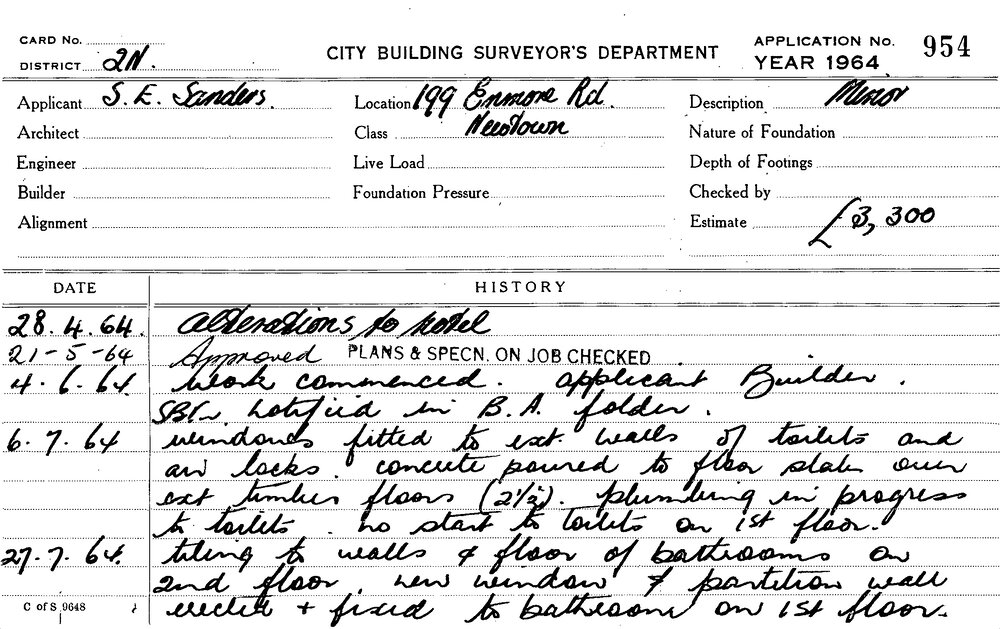 CARD No.
DISTRICT 2N.
CITY BUILDING SURVEYOR'S DEPARTMENT
APPLICATION No. 954
YEAR 1964
Applicant S. E. Sanders.
Location 199 Enmore Rd.
Description Minor
Architect
Class Newtown
Nature of Foundation
Engineer
Live Load
Depth of Footings
Builder
Foundation Pressure
Checked by
Alignment
Estimate £3,300
DATE HISTORY
28.4.64. alterations to hotel
21-5-64 Approved PLANS & SPECN. ON JOB CHECKED
4.6.64. work commenced. applicant Builder.
notified in B.A. folder.
6.7.64 windows fitted to ext. walls of toilets and
air locks. concrete poured to floor slabs over
ext timber floors (2½). plumbing in progress
to toilets. no start to toilets on 1st floor.
27.7.64. tiling to walls & floor of bathrooms on
2nd floor. new window & partition wall
erected + fixed to bathrooms on 1st floor.
C of S 9648